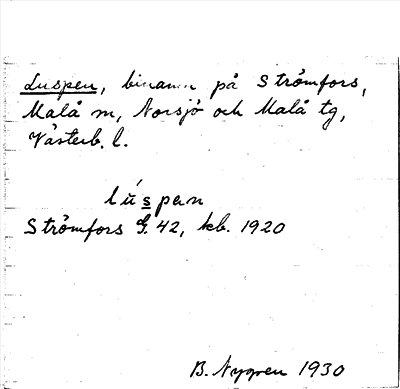 Luspen, binamn på Strömfors,
Malå m, Norsjö och Malå tg,
Västerb. l.
lúspen
Strömfors G. 42, kb. 1920
B. Nygren 1930